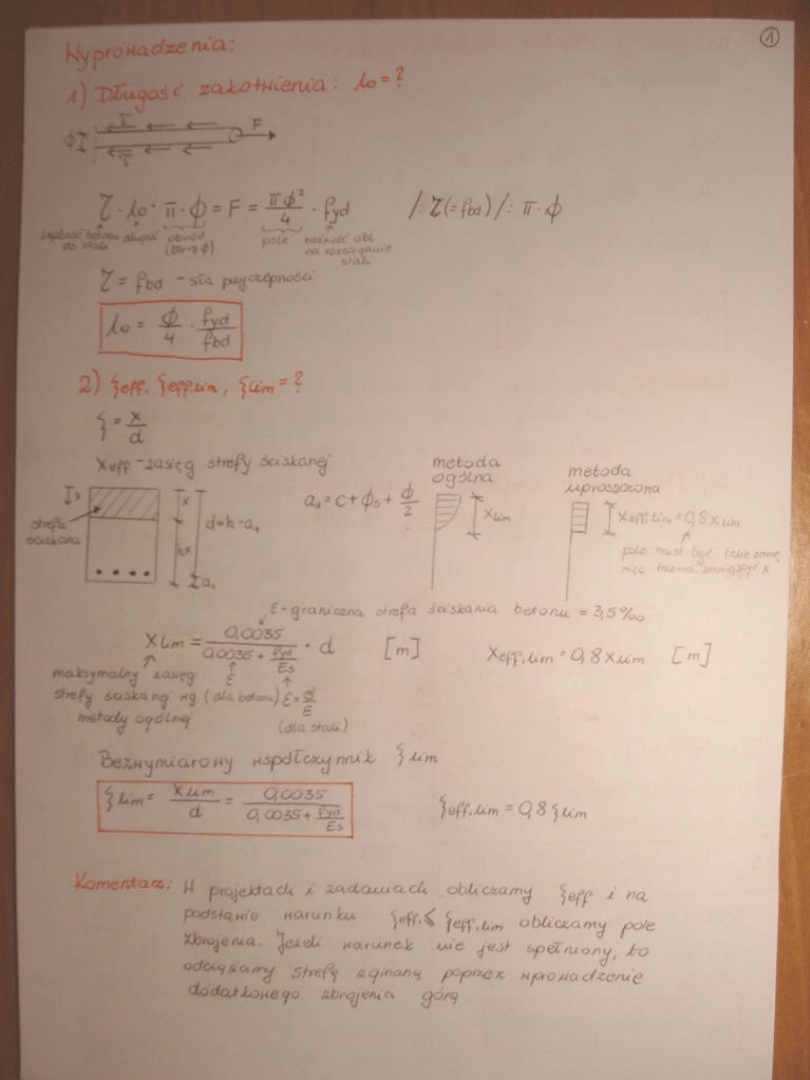 1
Wyprowadzenia:
1) Długość zakotwienia: lo = ?
τ
φ F
τ
τ · lo · π · φ = F = πφ²/4 · fyd /: τ(= fbd) /: π · φ
do stali długość obwód (2πr=π φ) pole nośność obl. na rozciąganie stali
τ = fbd - siła przyczepności
lo = φ/4 · fyd/fbd
2) ξeff, ξeff,lim, ξlim = ?
ξ = x/d
Xeff - zasięg strefy ściskanej
metoda ogólna
metoda uproszczona
x
x
d = h - a₁
a₁ = c + φs + φ/2
xlim
xeff,lim = 0,8 xlim
strefa ściskana
a₁
pole musi być takie same,
więc x
ε - graniczna strefa ściskania betonu = 3,5‰
xlim = 0,0035/(0,0035 + fyd/Es) · d [m] xeff,lim = 0,8 xlim [m]
maksymalny zasięg
strefy ściskanej wg
metody ogólnej
ε (dla betonu) ε = σ/E
(dla stali)
Bezwymiarowy współczynnik ξlim
ξlim = xlim/d = 0,0035/(0,0035 + fyd/Es) ξeff,lim = 0,8 ξlim
Komentarz: W projektach i zadaniach obliczamy ξeff i na
podstawie warunku ξeff ≤ ξeff,lim obliczamy pole
zbrojenia. Jeżeli warunek nie jest spełniony, to
odciążamy strefę zginaną poprzez wprowadzenie
dodatkowego zbrojenia górą.